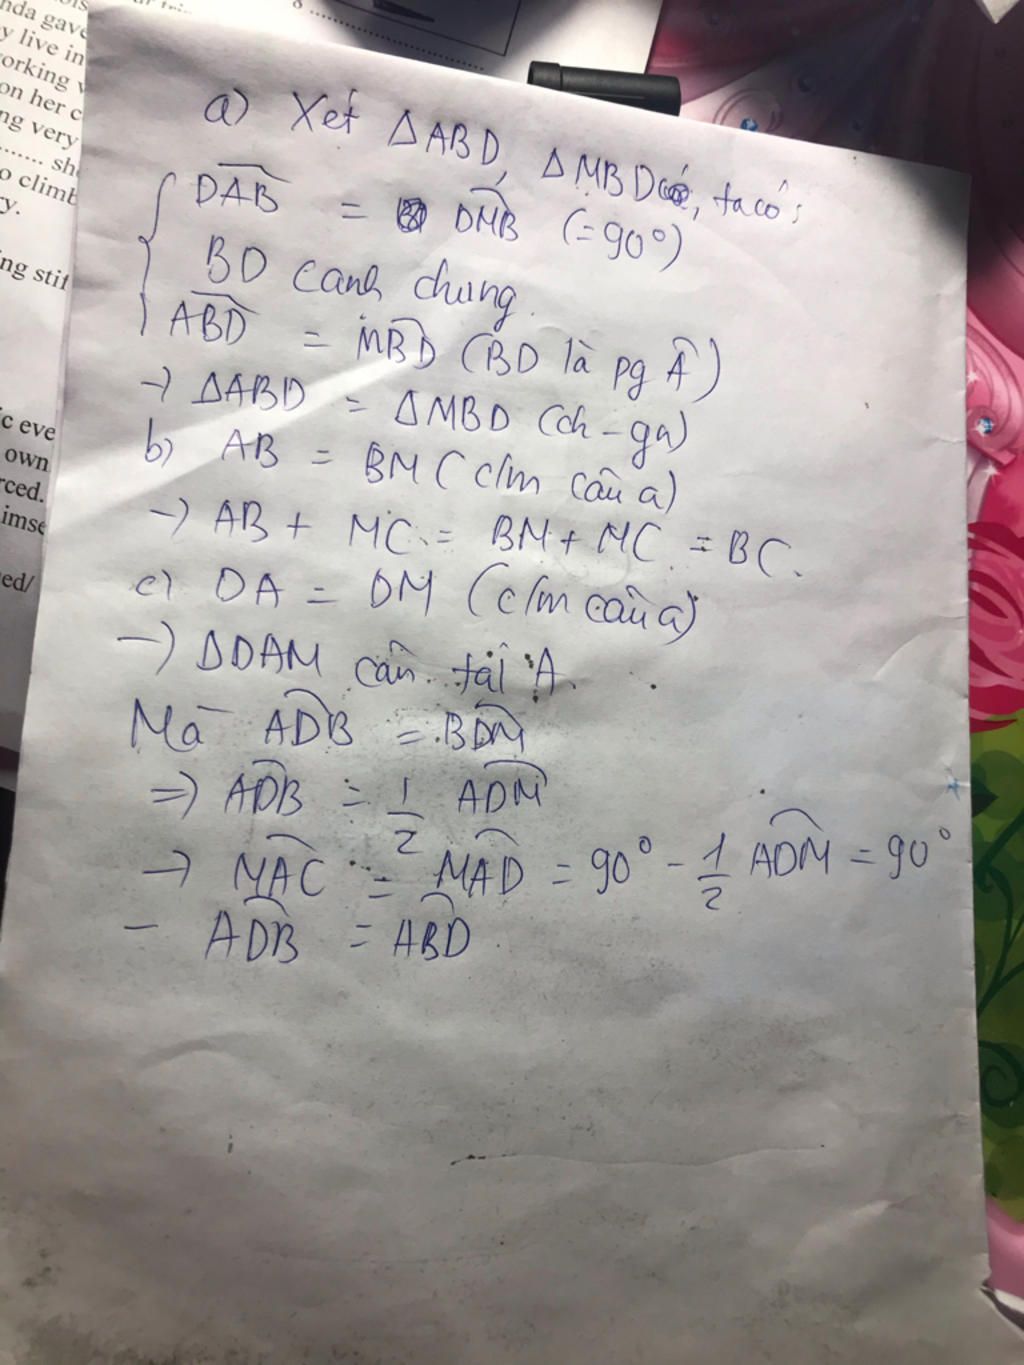 nda gave
y live in
orking
on her c
ng very
........ sh
o climb
y.
ng stif
c eve
own
rced.
imse
ed/
a) Xét ΔABD, ΔMBD, ta có:
DAB = DMB (=90°)
BD cạnh chung.
ABD = MBD (BD là pg Â)
→ ΔABD = ΔMBD (ch-gn)
b) AB = BM (c/m câu a)
→ AB + MC = BM + MC = BC.
c) DA = DM (c/m câu a)
→ ΔDAM cân tại A.
Mà ADB = BDM
⇒ ADB = 1/2 ADM
→ MAC = MAD = 90° - 1/2 ADM = 90°
- ADB = ABD.